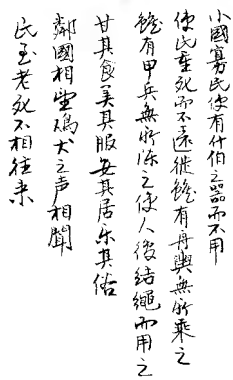 小國寡民使有什伯之器而不用
使民重死而不遠徙雖有舟輿無所乘之
雖有甲兵無所陈之使人復结繩而用之
甘其食美其服安其居乐其俗
鄰國相望鸡犬之声相聞
民至老死不相往来